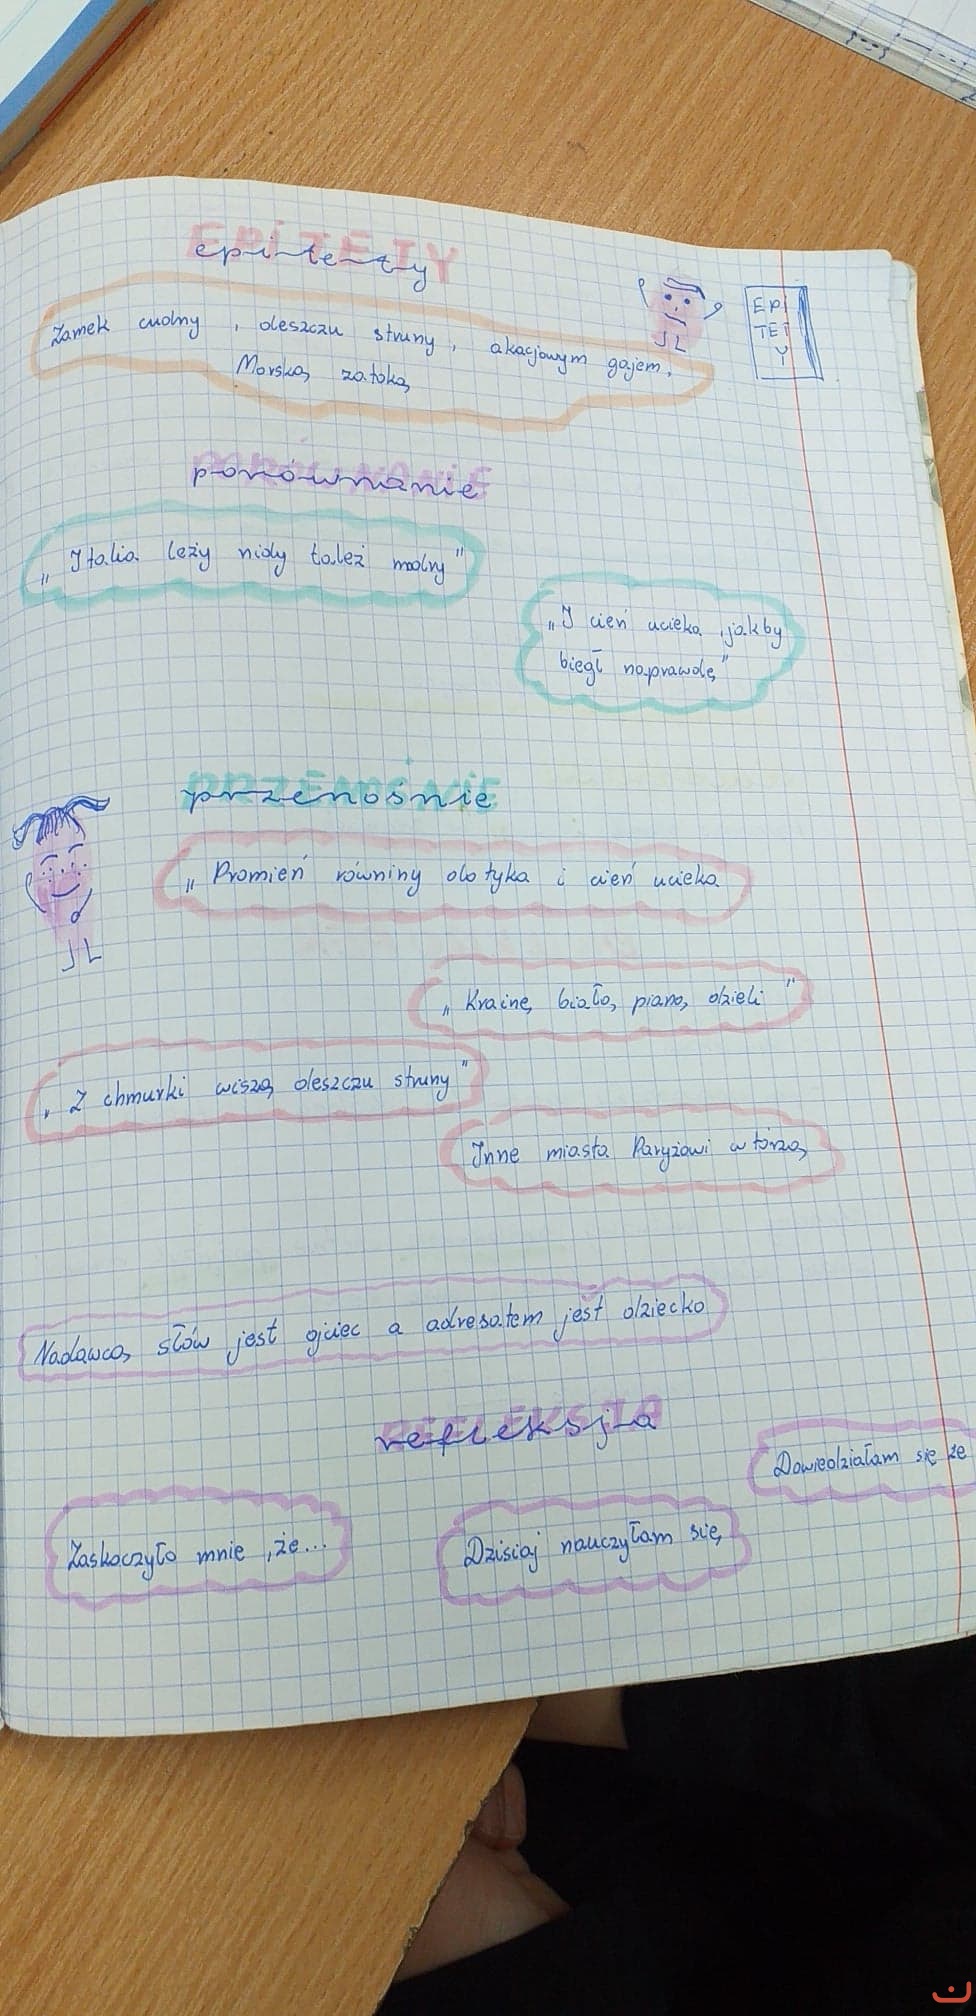 EPITETY
epitety
Zamek cudny , deszczu struny , akacjowym gajem,
Morską zatoką
JL
EPI
TET
Y
PORÓWNANIE
porównanie
„ Italia leży nidy tależ modry "
„I cień ucieka ,jakby
biegł naprawdę"
PRZENOŚNIE
przenośnie
„ Promień równiny dotyka i cień ucieka
JL
„ Krainę białą, pianą, dzieli "
„ Z chmurki wiszą deszczu struny "
Inne miasta Paryżowi wtórzą
Nadawcą słów jest ojciec a adresatem jest dziecko
REFLEKSJA
refleksja
Dowiedziałam się że
Zaskoczyło mnie ,że...
Dzisiaj nauczyłam się